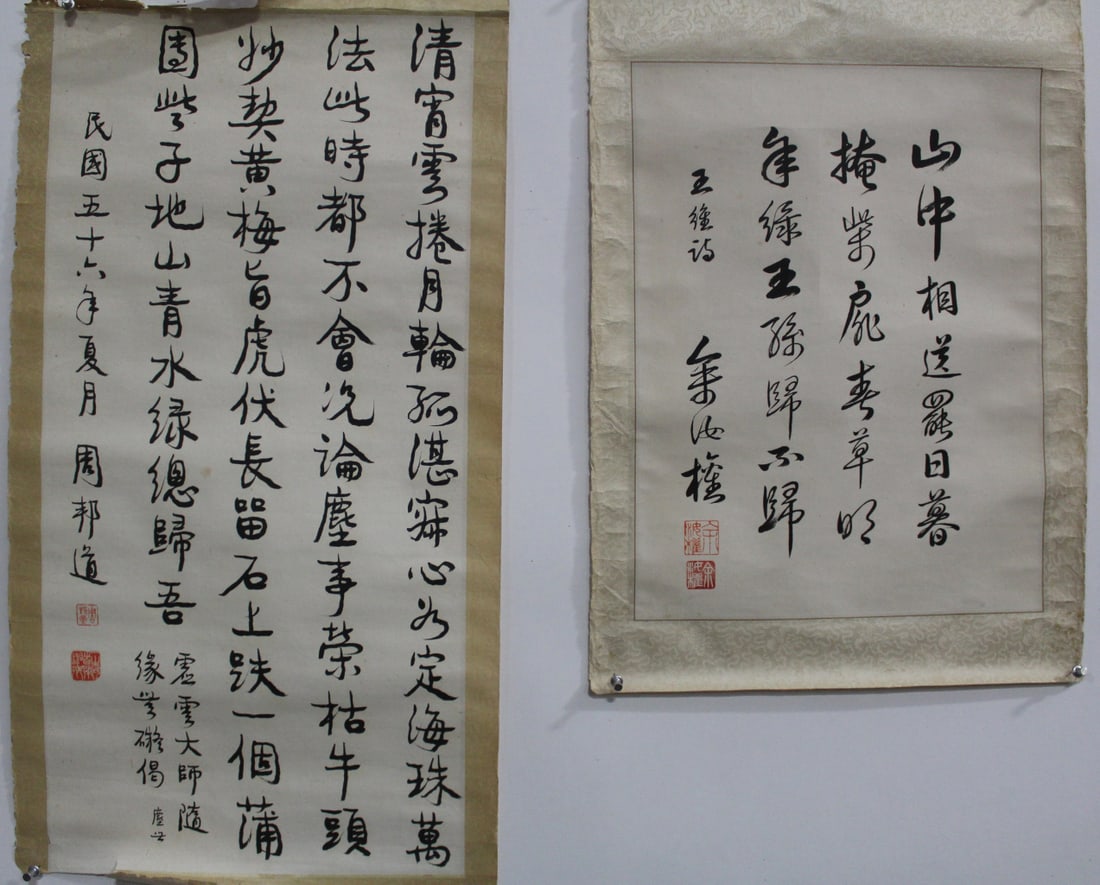 清宵雲捲月輪孤湛寂心為定海珠萬
法此時都不會況論塵事榮枯牛頭
妙契黃梅旨虎伏長留石上趺一個蒲
團些子地山青水綠總歸吾
虛雲大師隨
緣無礙偈
民國五十六年夏月 周邦道
山中相送罷日暮
掩柴扉春草明
年綠王孫歸不歸
王維詩 余汝權